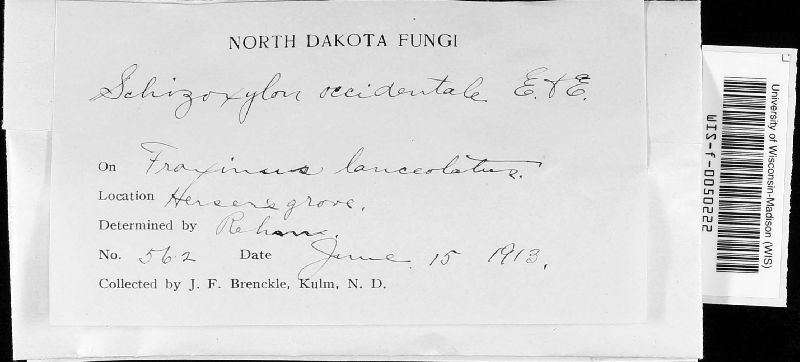 NORTH DAKOTA FUNGI
Schizoxylon occidentale E. & E.
On Fraxinus lanceolatus.
Location grove.
Determined by Rehm.
No. 562 Date June 15 1913.
Collected by J. F. Brenckle, Kulm, N. D.
University of Wisconsin-Madison (WIS)
WIS-f-0050222